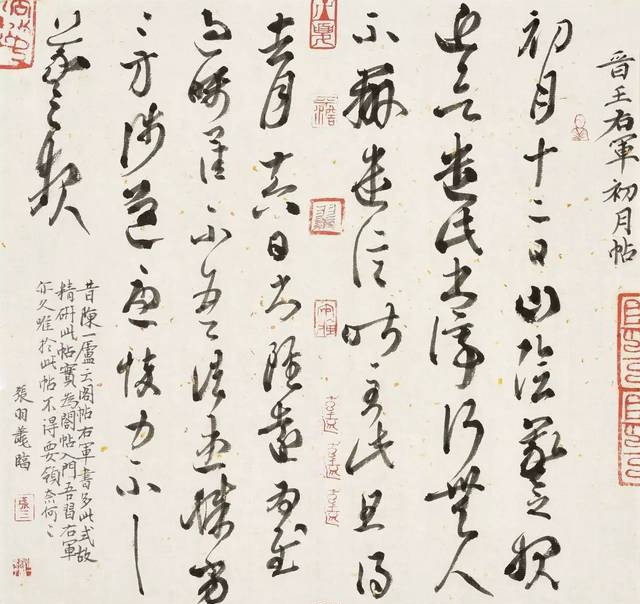 晉王右軍初月帖
初月十二日山陰羲之報
近欲遣此書停行無人
不辦遣信昨至此且得
去月十六日書雖遠為慰
過囑卿佳不吾諸患殊劣
〻方涉道憂悴力不具
羲之報
昔陳一廬云閣帖右軍書多此式故
精研此帖實為閣帖入門吾習右軍
亦久唯於此帖不得要領奈何〻
張羽臨